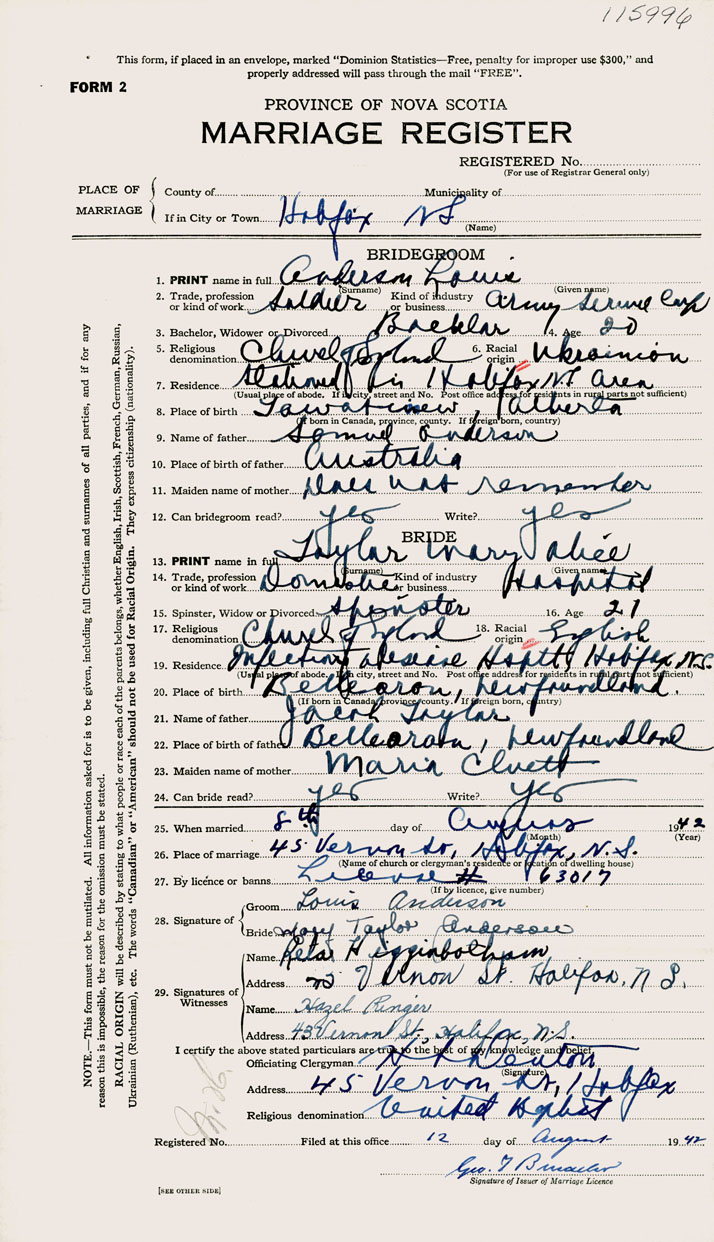 115996
This form, if placed in an envelope, marked "Dominion Statistics—Free, penalty for improper use $300," and
properly addressed will pass through the mail "FREE".
FORM 2
PROVINCE OF NOVA SCOTIA
MARRIAGE REGISTER
REGISTERED No.
(For use of Registrar General only)
PLACE OF MARRIAGE
County of Municipality of
If in City or Town Halifax NS
(Name)
BRIDEGROOM
1. PRINT name in full Anderson Louis
(Surname) (Given name)
2. Trade, profession or kind of work Soldier Kind of industry or business Army Service Corp
3. Bachelor, Widower or Divorced Bachlar 4. Age 20
5. Religious denomination Church of England 6. Racial origin Ukrainian
7. Residence Stationed in Halifax N.S. area
(Usual place of abode. If in city, street and No. Post office address for residents in rural parts not sufficient)
8. Place of birth , Alberta
(If born in Canada, province, county. If foreign born, country)
9. Name of father Samuel Anderson
10. Place of birth of father Australia
11. Maiden name of mother Does not remember
12. Can bridegroom read? yes Write? yes
BRIDE
13. PRINT name in full Taylor Mary Alice
(Surname) (Given name)
14. Trade, profession or kind of work Domestic Kind of industry or business Hospital
15. Spinster, Widow or Divorced Spinster 16. Age 21
17. Religious denomination Church of England 18. Racial origin English
19. Residence Infectious Halifax, N.S.
(Usual place of abode. If in city, street and No. Post office address for residents in rural parts not sufficient)
20. Place of birth Belleoram, Newfoundland.
(If born in Canada, province, county. If foreign born, country)
21. Name of father Jacob Taylor
22. Place of birth of father Belleoram, Newfoundland
23. Maiden name of mother Maria Cluett
24. Can bride read? yes Write? yes
25. When married 8th day of August 1942
(Month) (Year)
26. Place of marriage 45 Vernon St, Halifax, N.S.
(Name of church or clergyman's residence or location of dwelling house)
27. By licence or banns License # 63017
(If by licence, give number)
28. Signature of
Groom Louis Anderson
Bride Mary Taylor Anderson
29. Signatures of Witnesses
Name Higginbotham
Address Vernon St. Halifax, N.S.
Name Hazel Ringer
Address 43 Vernon St., Halifax, N.S.
I certify the above stated particulars are true to the best of my knowledge and belief.
Officiating Clergyman
(Signature)
Address 45 Vernon St, Halifax
Religious denomination United Baptist
Registered No. Filed at this office 12 day of August 1942
Geo. T
Signature of Issuer of Marriage Licence
[SEE OTHER SIDE]
NOTE.—This form must not be mutilated. All information asked for is to be given, including full Christian and surnames of all parties, and if for any
reason this is impossible, the reason for the omission must be stated.
RACIAL ORIGIN will be described by stating to what people or race each of the parents belongs, whether English, Irish, Scottish, French, German, Russian,
Ukrainian (Ruthenian), etc. The words "Canadian" or "American" should not be used for Racial Origin. They express citizenship (nationality).